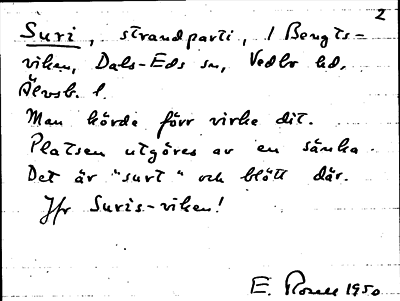 2
Suri, strandparti, i Bengts-
viken, Dals-Eds sn, Vedbo hd,
Älvsb. l.
Man körde förr virke dit.
Platsen utgöres av en sänka.
Det är "surt" och blött där.
Jfr Suris-viken!
E. Rosell 1950